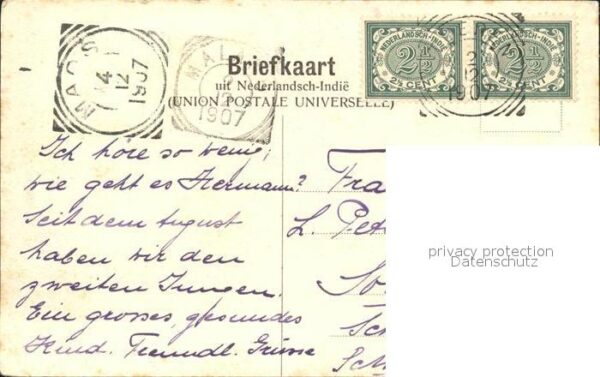 Briefkaart
uit Nederlandsch-Indië
(UNION POSTALE UNIVERSELLE)
NEDERLANDSCH-INDIË
2½
2½ CENT
NEDERLANDSCH-INDIË
2½
2½ CENT
MAOS
4
12
1907
MALA
1907
2
12
1907
Ich höre so wenig,
wie geht es Hermann?
Seit dem August
haben wir den
zweiten Jungen.
Ein grosses, gesundes
Kind. Freundl. Grüsse
Fra
L. Pet
So
Sch
privacy protection
Datenschutz